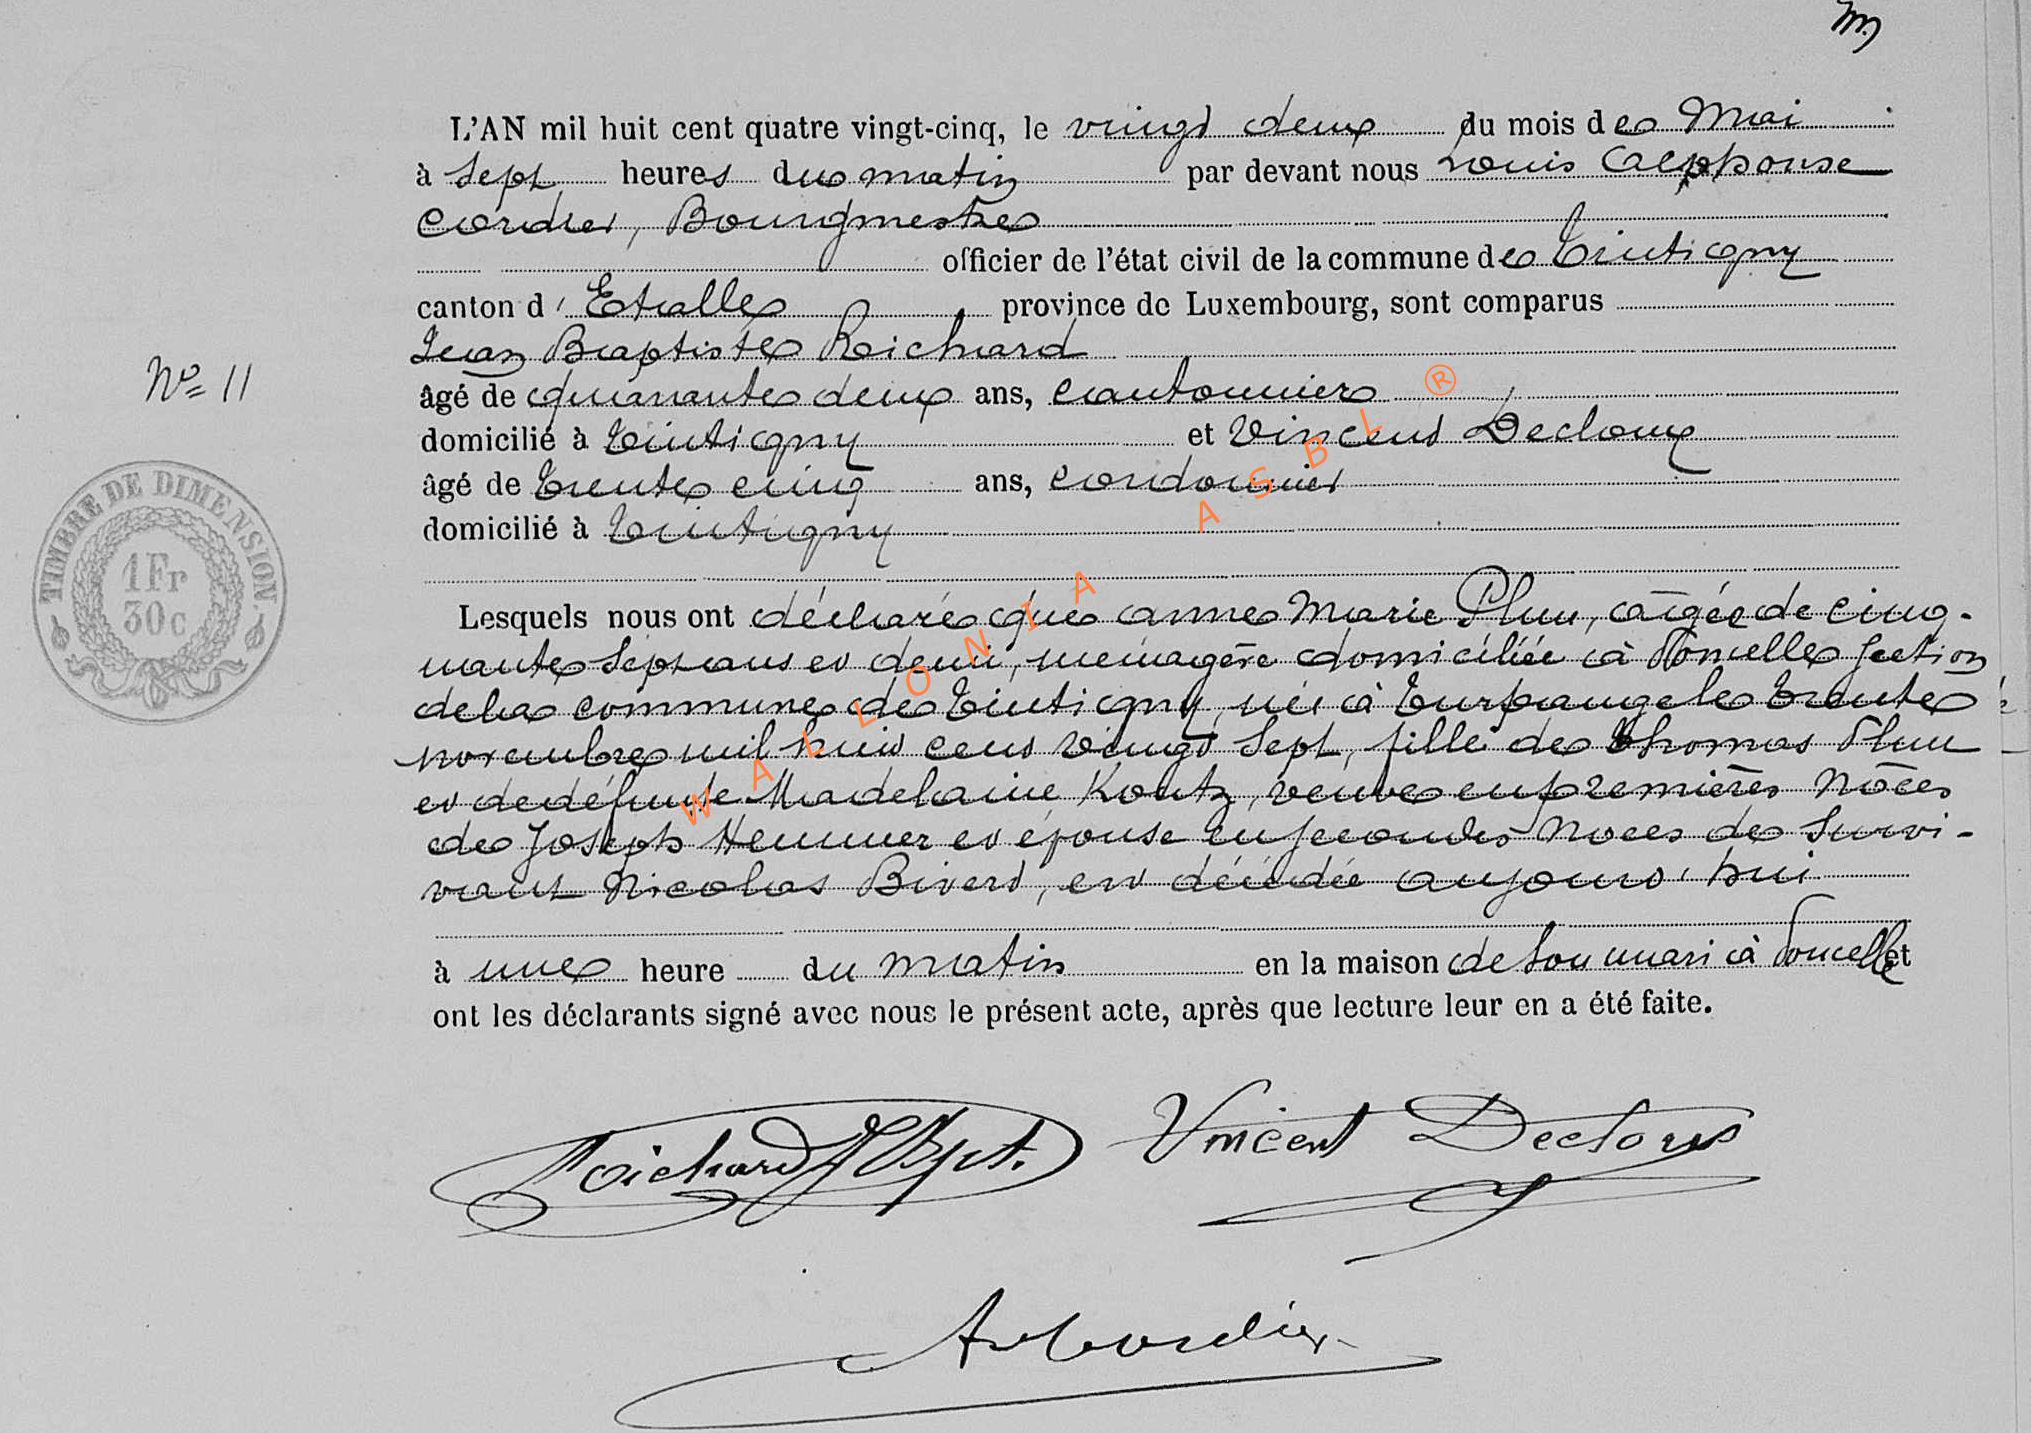 L'AN mil huit cent quatre vingt-cinq, le vingt deux du mois de Mai
à sept heures du matin par devant nous Louis Alphonse
Cordier, Bourgmestre
officier de l'état civil de la commune de Tintigny
canton d'Etalle province de Luxembourg, sont comparus
Jean Baptiste Reichard
N° 11
âgé de quarante deux ans, cantonnier
domicilié à Tintigny et Vincent Decloux
âgé de trente cinq ans, cordonnier
domicilié à Tintigny
TIMBRE DE DIMENSION
1 Fr
30 c
Lesquels nous ont déclaré que Anne Marie Plun, âgée de cinq-
uante sept ans et demi, ménagère domiciliée à Poncelle section
de la commune de Tintigny, née à Turpange le trente
novembre mil huit cent vingt sept, fille de Thomas Plun
et de défunte Madelaine Kontz, veuve en premières nôces
de Joseph Hemmer et épouse en secondes noces de survi-
vant Nicolas Biverd, est décédée aujourd'hui
à une heure du matin en la maison de son mari à Poncelle et
ont les déclarants signé avec nous le présent acte, après que lecture leur en a été faite.
Reichard J Bpt. Vincent Decloux
A Cordier
WALLONIA ASBL ®